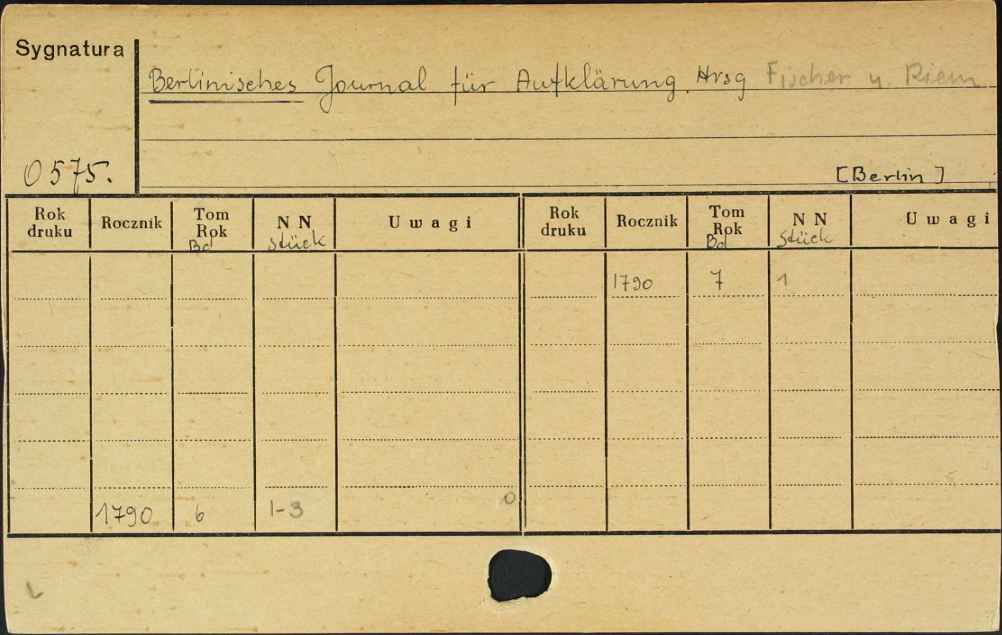 Sygnatura
Berlinisches Journal für Aufklärung. Hrsg Fischer u. Riem
0575.
[Berlin]
Rok druku Rocznik Tom Rok Bd N N Stück Uwagi Rok druku Rocznik Tom Rok Bd N N Stück Uwagi
1790 7 1
1790 6 1-3 0